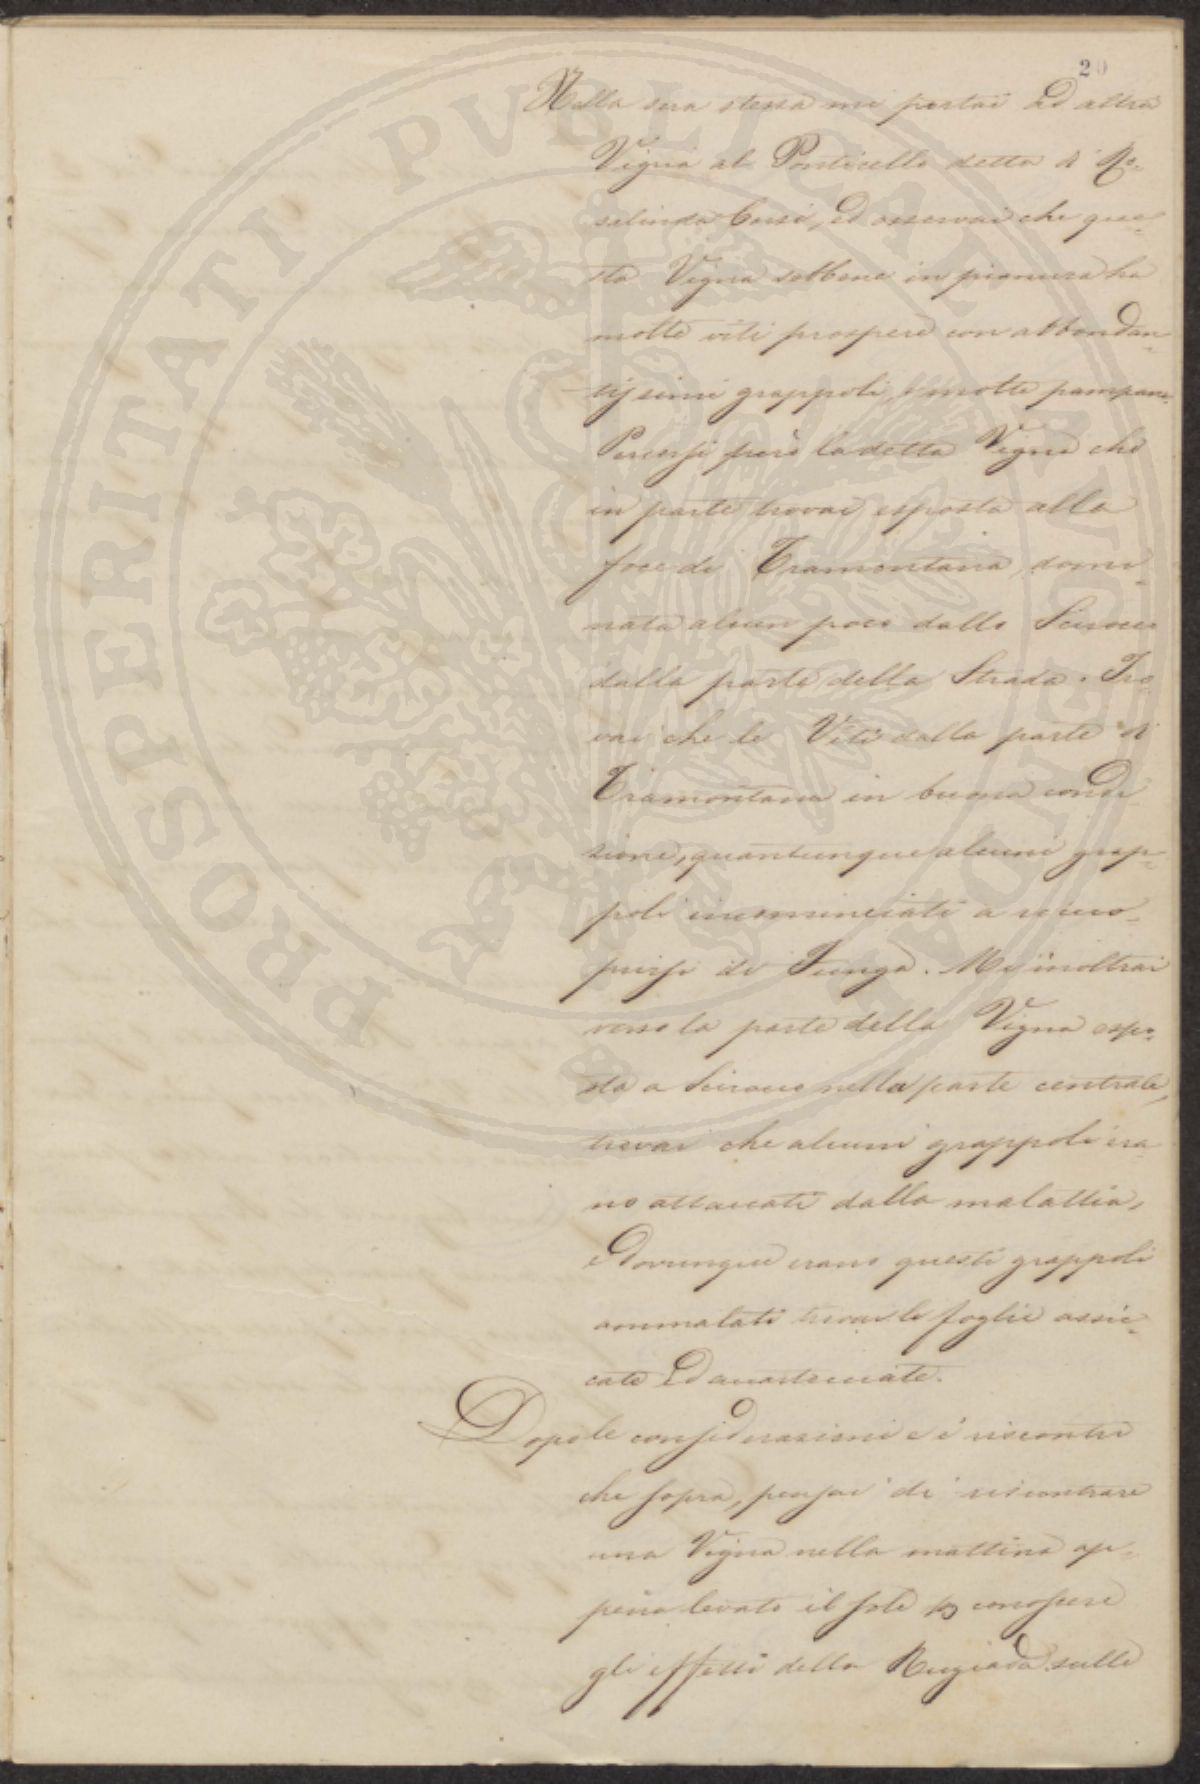 20
Nella sera stessa mi portai ad altra
Vigna al Ponticello detta di Ro-
salinda Corsi, ed osservai che que-
sta Vigna sebbene in pianura ha
molte viti prospere con abbondan-
tissimi grappoli, e molte pampane.
Percorsi però la detta Vigna che
in parte trovai esposta alla
foce di Tramontana, domi-
nata alcun poco dallo Scirocco
dalla parte della Strada. Tro
vai che le Viti dalla parte di
Tramontana in buona condi
zione, quantunque alcuni grap-
poli incominciati a rico-
prirsi di Funga. M'inoltrai
verso la parte della Vigna espo-
sta a Scirocco nella parte centrale,
trovai che alcuni grappoli era-
no attaccati dalla malattia,
e dovunque erano questi grappoli
ammalati trovai le foglie assic-
cate ed accartocciate.
Dopo le considerazioni e i riscontri
che sopra, pensai di riscontrare
una Vigna nella mattina ap-
pena levato il sole p conoscere
gli effetti della Rugiada sulle
PROSPERITATI PVBLICAE AVGENDAE